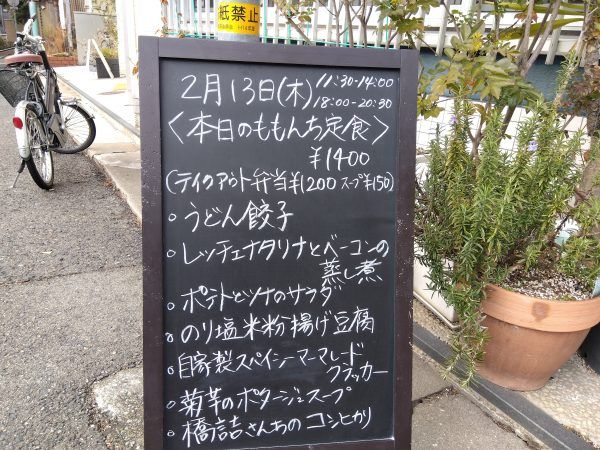 紙禁止
2月13日(木) 11:30-14:00
18:00-20:30
〈本日のももんち定食〉
¥1400
(テイクアウト弁当¥1200 スープ¥150)
○うどん餃子
○レッチェナタリナとベーコンの
蒸し煮
○ポテトとツナのサラダ
○のり塩米粉揚げ豆腐
○自家製スペイシーマーマレード
クラッカー
○菊芋のポタージュスープ
○橋詰さんちのコシヒカリ